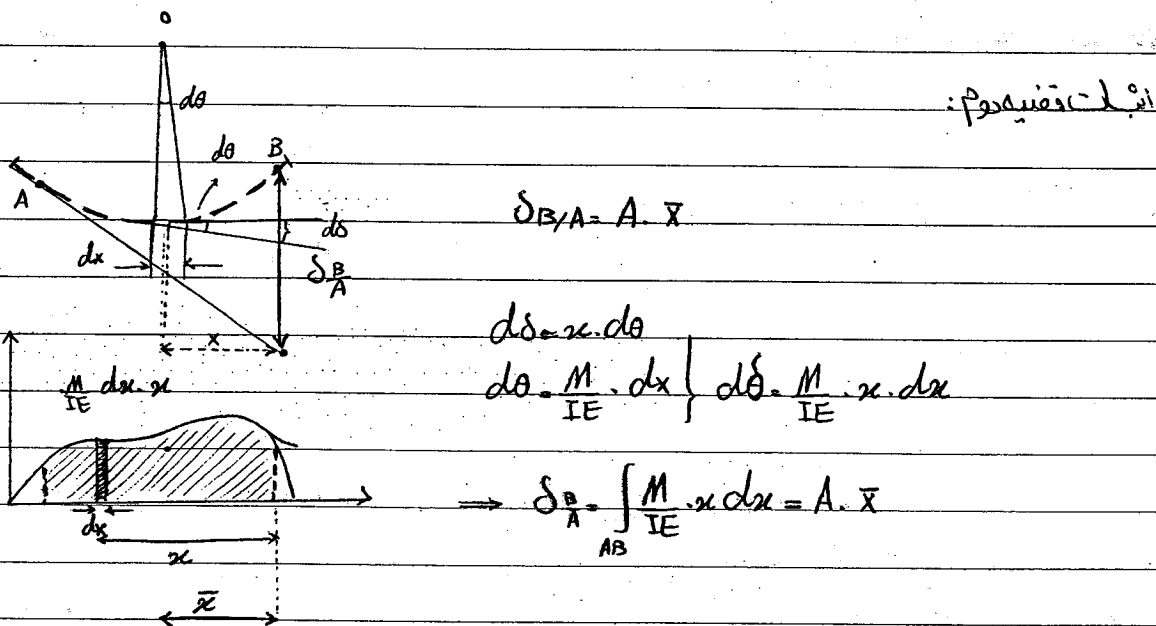 اثبات قضیه دوم:
O
dθ
dθ
B
A
dδ
dx
δB/A
x
δB/A = A. x̄
dδ = x. dθ
dθ = M/IE . dx } dδ = M/IE . x. dx
M/IE dx. x
⟹ δB/A = ∫AB M/IE . x dx = A. x̄
dx
x
x̄